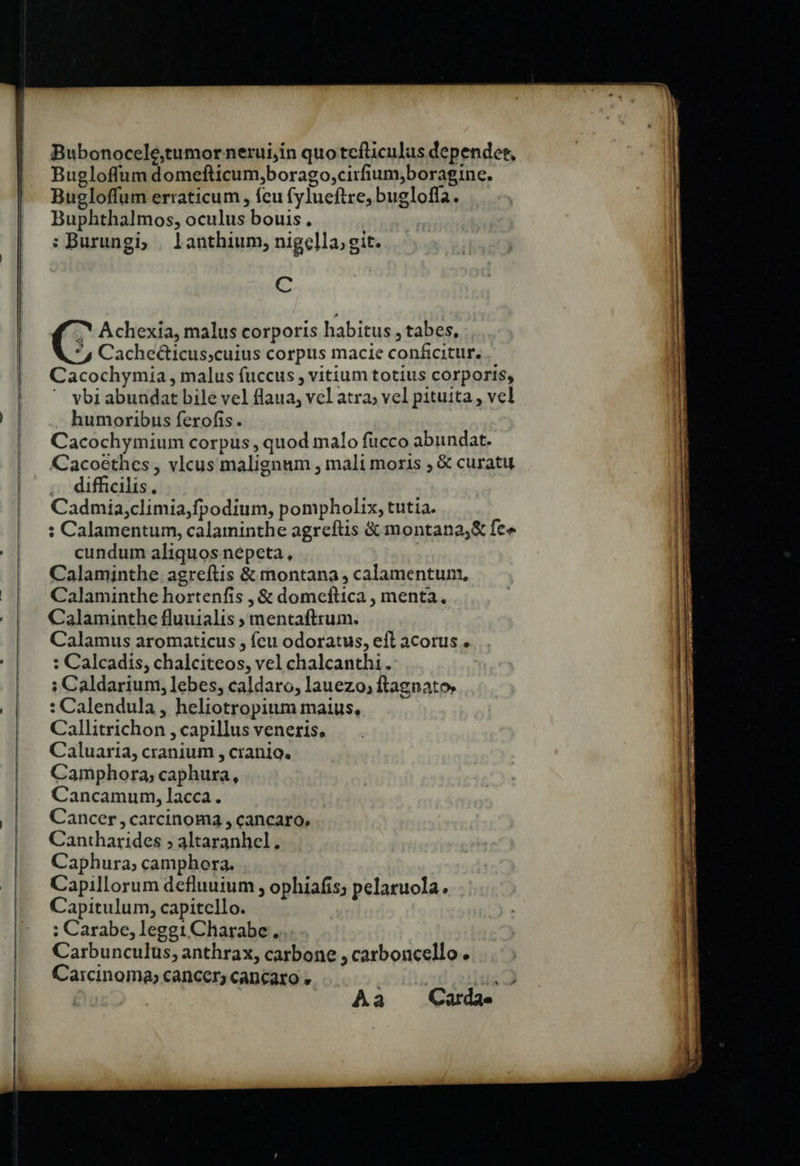 Bubonocele,tumor nerui,in quo teſticulus dependet.
Bugloſſum domeſticum,borago,cirſium,boragine.
Bugloſſum erraticum , ſeu ſylueſtre, bugloſſa.
Buphthalmos, oculus bouis .
: Burungi, lanthium, nigella, git.
C
C Achexia, malus corporis habitus , tabes.
Cachecticus,cuius corpus macie conficitur.
Cacochymia , malus ſuccus , vitium totius corporis,
vbi abundat bile vel flaua, vel atra, vel pituita , vel
humoribus ſeroſis.
Cacochymium corpus , quod malo ſucco abundat.
Cacoëthes , vlcus malignum , mali moris , & curatu
difficilis.
Cadmia,climia,ſpodium, pompholix, tutia.
: Calamentum, calaminthe agreſtis & montana,& ſe-
cundum aliquos nepeta.
Calaminthe agreſtis & montana , calamentum.
Calaminthe hortenſis , & domeſtica , menta.
Calaminthe fluuialis , mentaſtrum.
Calamus aromaticus , ſeu odoratus, eſt acorus .
: Calcadis, chalciteos, vel chalcanthi .
: Caldarium, lebes, caldaro, lauezo, ſtagnato,
: Calendula , heliotropium maius.
Callitrichon , capillus veneris.
Caluaria, cranium , cranio.
Camphora, caphura.
Cancamum, lacca .
Cancer , carcinoma , cancaro.
Cantharides , altaranhel .
Caphura, camphora.
Capillorum defluuium , ophiaſis, pelaruola .
Capitulum, capitello.
: Carabe, leggi Charabe .
Carbunculus, anthrax, carbone , carboncello .
Carcinoma, cancer, cancaro .
Aa Carda-